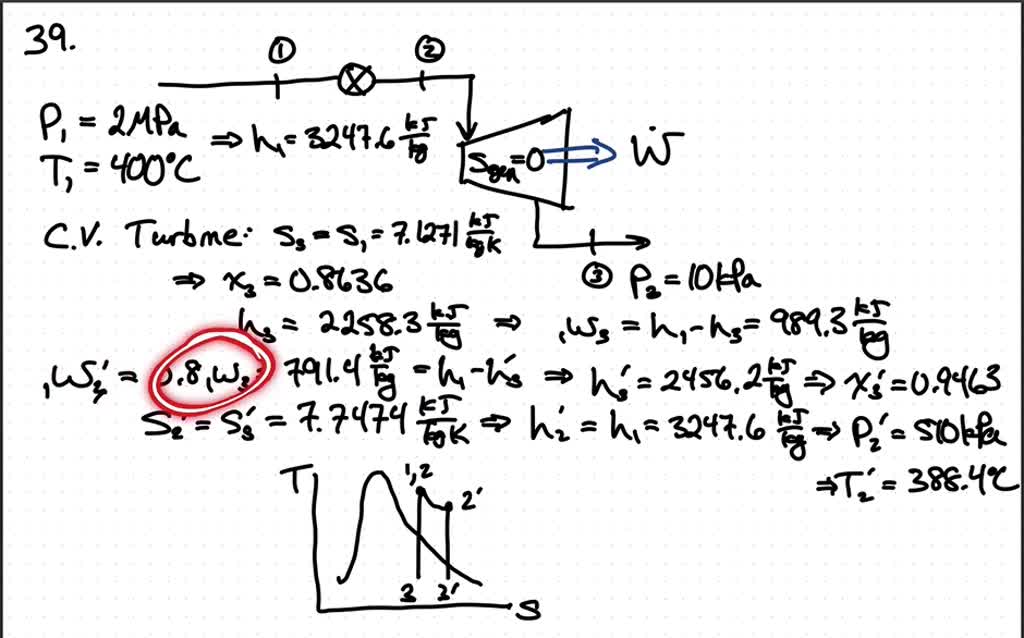 39.
① ②
P₁ = 2MPa
T₁ = 400°C
⇒ h₁ = 3247.6 kJ/kg
Sgen = 0 ⇒ Ẇ
C.V. Turbine: S₃ = S₁ = 7.1271 kJ/kgK
③ P₃ = 10 kPa
⇒ x₃ = 0.8636
h₃ = 2258.3 kJ/kg ⇒ ₁w₃ = h₁ - h₃ = 989.3 kJ/kg
= 791.4 kJ/kg = h₁ - h₃' ⇒ h₃' = 2456.2 kJ/kg ⇒ x₃' = 0.9463
S₂' = S₃' = 7.7474 kJ/kgK ⇒ h₂' = h₁ = 3247.6 kJ/kg ⇒ P₂' = 510 kPa
⇒ T₂' = 388.4°C
T 1,2 2'
3 3' S